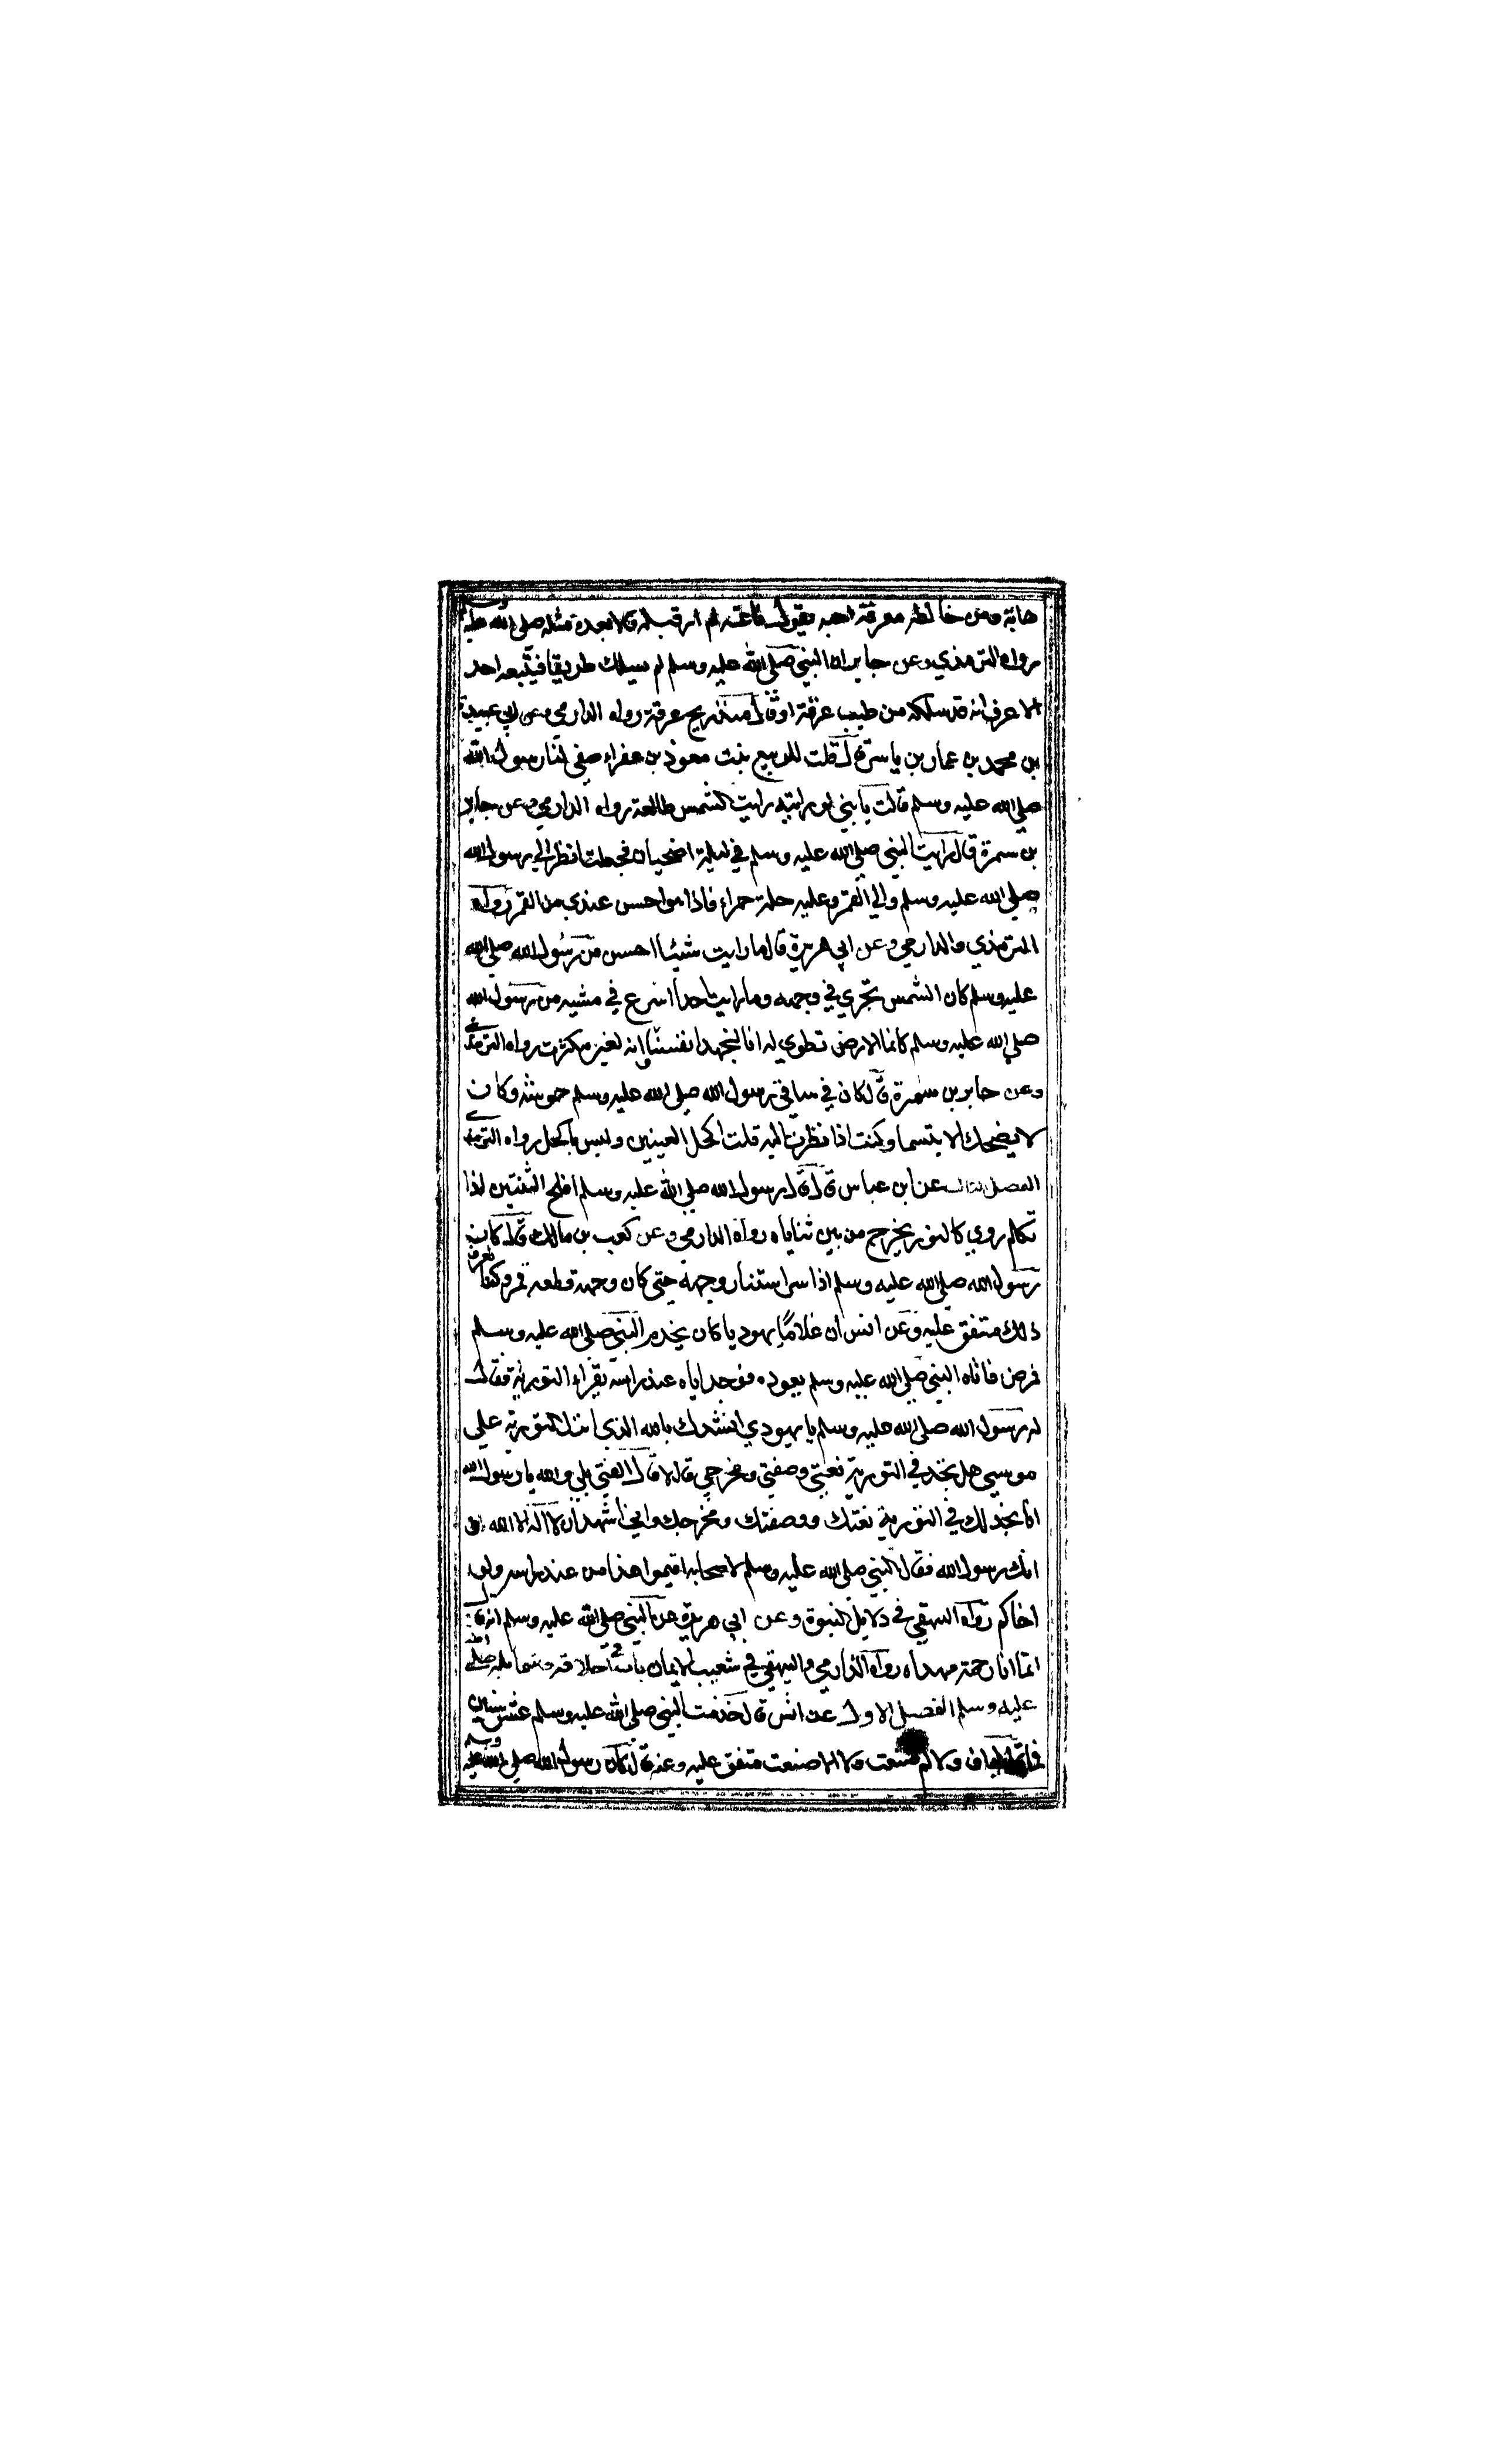 هابه ومن خالطه معرفة احبه يقول ناعته لم ار قبله ولا بعده مثله صلى الله عليه وسلم
رواه الترمذي وعن جابر ان النبي صلى الله عليه وسلم لم يسلك طريقا فيتبعه احد
الا عرف انه قد سلكه من طيب عرقه او قال من ريح عرقه رواه الدارمي وعن ابي عبيدة
بن محمد بن عمار بن ياسر قال قلت للربيع بنت معوذ بن عفراء صفي لنا رسول الله
صلى الله عليه وسلم قالت يا بني لو رايته رايت الشمس طالعة رواه الدارمي وعن جابر
بن سمرة قال رايت النبي صلى الله عليه وسلم في ليلة اضحيان فجعلت انظر الي رسول الله
صلى الله عليه وسلم والي القمر وعليه حلة حمراء فاذا هو احسن عندي من القمر رواه
الترمذي والدارمي وعن ابي هريرة قال ما رايت شيئا احسن من رسول الله صلى الله
عليه وسلم كان الشمس تجري في وجهه وما رايت احدا اسرع في مشيه من رسول الله
صلى الله عليه وسلم كانما الارض تطوي له انا لنجهد انفسنا وانه لغير مكترث رواه الترمذي
وعن جابر بن سمرة قال كان في ساقي رسول الله صلى الله عليه وسلم حموشة وكان
لا يضحك الا تبسما وكنت اذا نظرت اليه قلت اكحل العينين وليس باكحل رواه الترمذي
الفصل الثالث عن ابن عباس قال قال رسول الله صلى الله عليه وسلم افلج الثنتين اذا
تكلم روي كالنور يخرج من بين ثناياه رواه الدارمي وعن كعب بن مالك قال كان
رسول الله صلى الله عليه وسلم اذا سر استنار وجهه حتى كان وجهه قطعة قمر وكنا نعرف
ذلك متفق عليه وعن انس ان غلاما يهوديا كان يخدم النبي صلى الله عليه وسلم
فمرض فاتاه النبي صلى الله عليه وسلم يعوده فوجد اباه عند راسه يقراء التورية فقال
له رسول الله صلى الله عليه وسلم يا يهودي انشدك بالله الذي انزل التورية علي
موسي هل تجد في التورية نعتي وصفتي ومخرجي قال لا قال الفتي بلي والله يا رسول الله
انا نجد لك في التورية نعتك ووصفتك ومخرجك واني اشهد ان لا اله الا الله
انك رسول الله فقال النبي صلى الله عليه وسلم لاصحابه اقيموا هذا من عند راسه ولوا
اخاكم رواه البيهقي في دلايل النبوة وعن ابي هريرة عن النبي صلى الله عليه وسلم انه قال
انما انا رحمة مهداه رواه الدارمي والبيهقي في شعب الايمان باب في اخلاقه وشمايله صلى الله
عليه وسلم الفصل الاول عن انس قال خدمت النبي صلى الله عليه وسلم عشر سنين
فما قال لي اف ولا لم صنعت ولا الا صنعت متفق عليه وعنه قال كان رسول الله صلى الله عليه وسلم